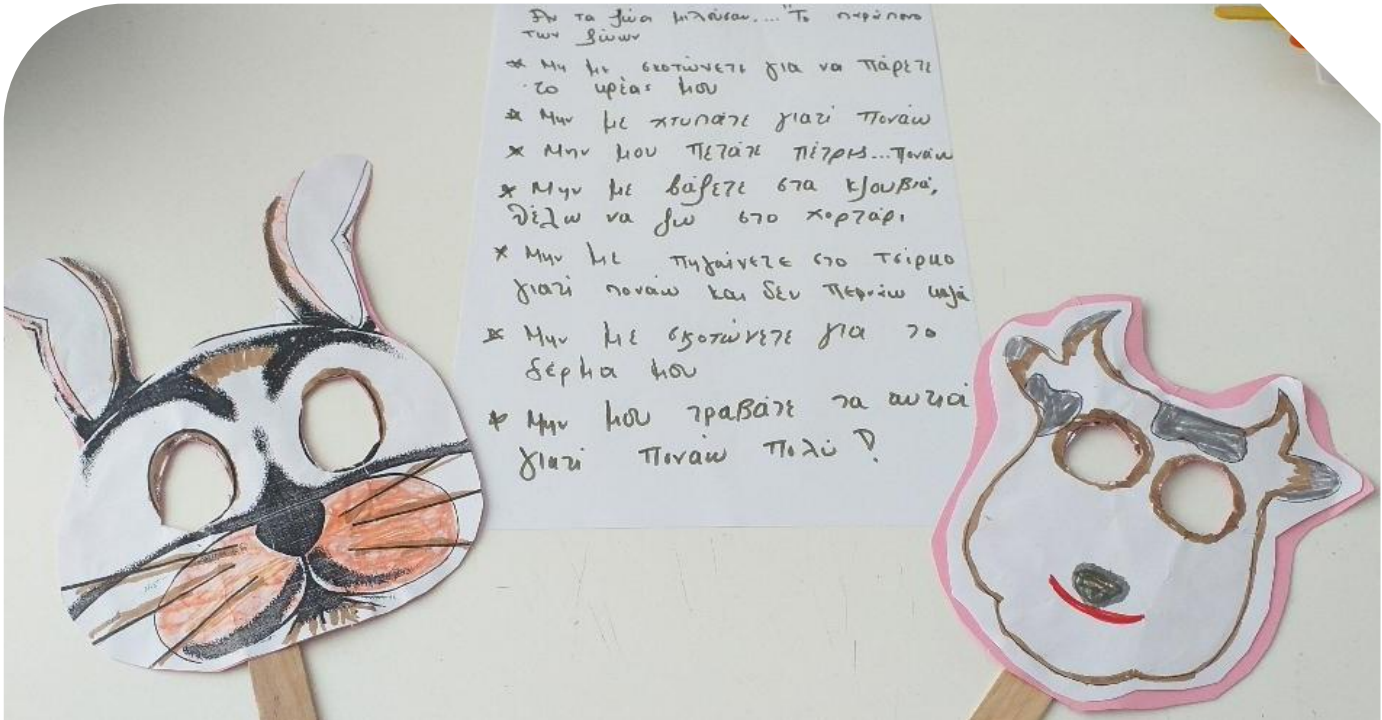 Αν τα ζώα μιλούσαν.... "Το παράπονο
των ζώων
* Μη με σκοτώνετε για να πάρετε
το κρέας μου
* Μην με χτυπάτε γιατί πονάω
* Μην μου πετάτε πέτρες...πονάω
* Μην με βάζετε στα κλουβιά,
θέλω να ζω στο χορτάρι
* Μην με πηγαίνετε στο τσίρκο
γιατί πονάω και δεν περνάω καλά
* Μην με σκοτώνετε για το
δέρμα μου
* Μην μου τραβάτε τα αυτιά
γιατί πονάω πολύ !